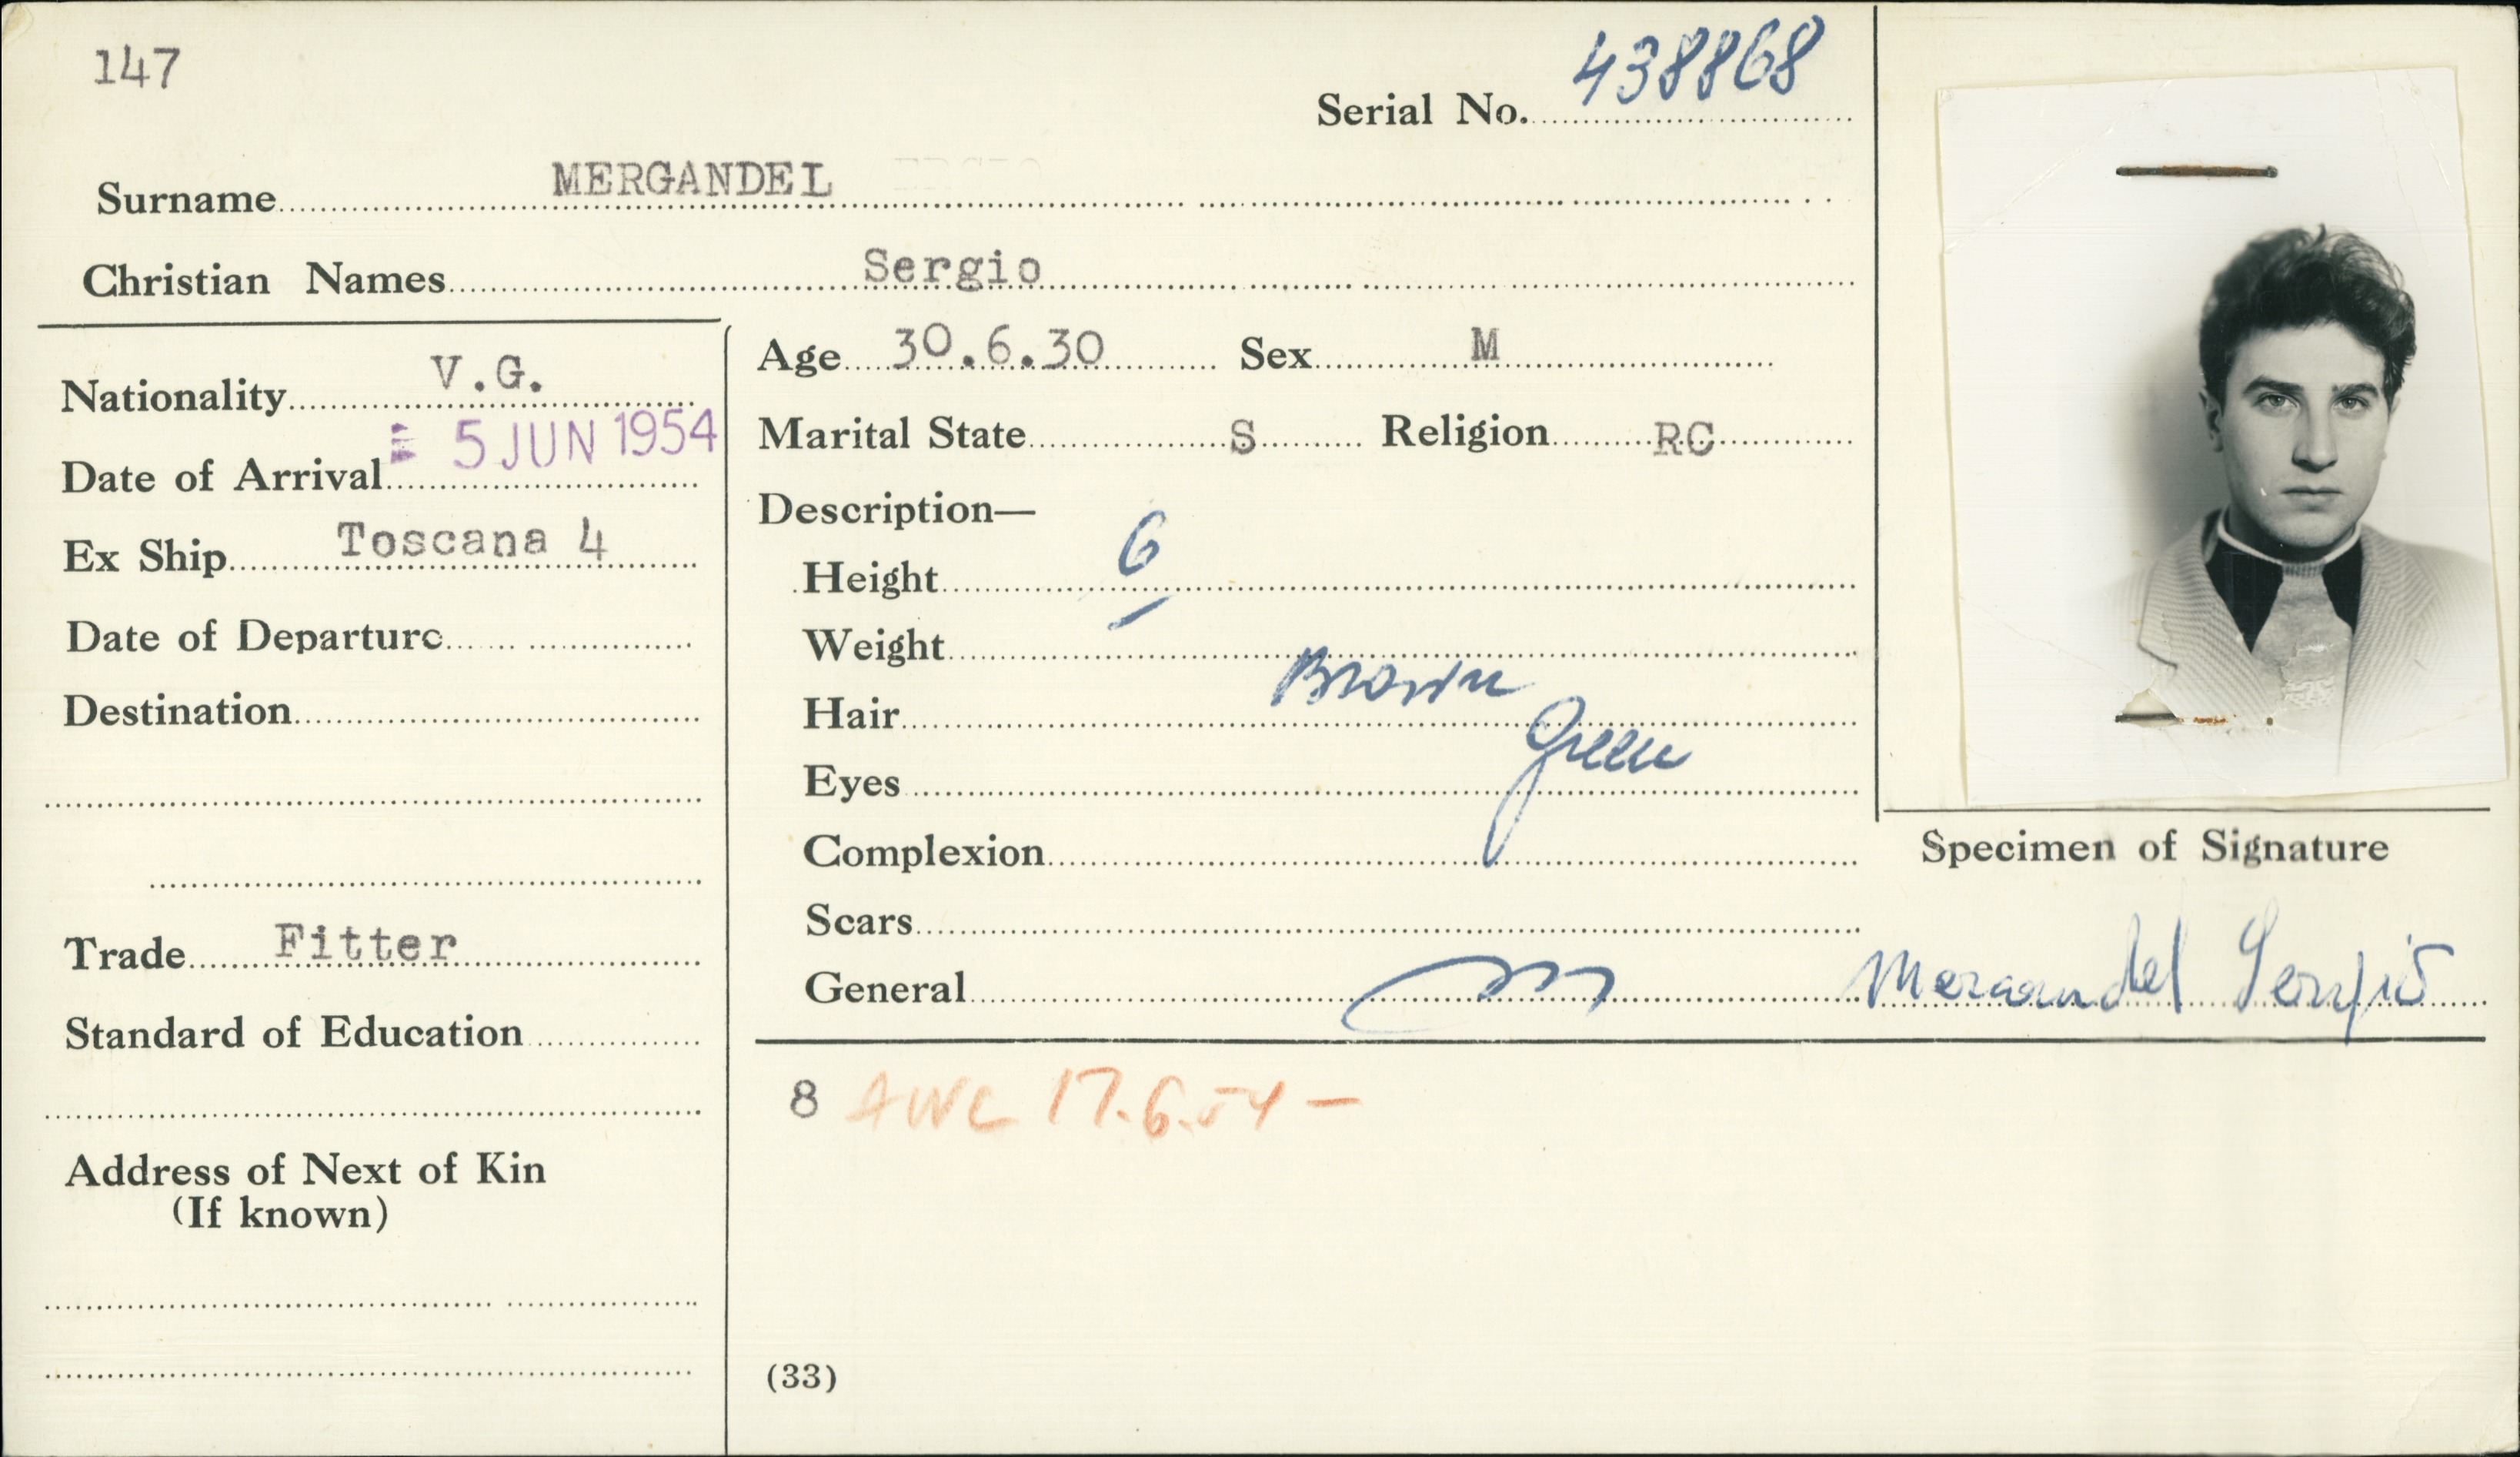 147
Serial No. 438868
Surname MERGANDEL
Christian Names Sergio
Nationality V.G.
Date of Arrival 5 JUN 1954
Ex Ship Toscana 4
Date of Departure
Destination
Trade Fitter
Standard of Education
Address of Next of Kin
(If known)
Age 30.6.30 Sex M
Marital State S Religion RC
Description—
Height 6
Weight
Hair Brown
Eyes Green
Complexion
Scars
General
Specimen of Signature
Mergandel Sergio
8 AWC 17.6.54 —
(33)